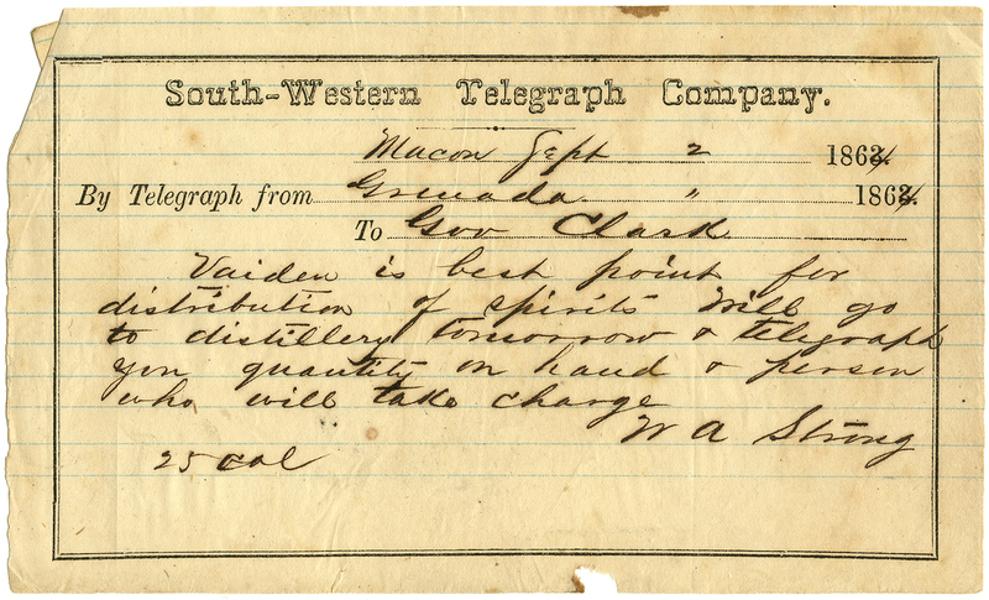 South-Western Telegraph Company.
Macon Sept 2 1864.
By Telegraph from Grenada " 1864.
To Gov Clark
Vaiden is best point for
distribution of spirits Will go
to distillery tomorrow & telegraph
you quantity on hand & person
who will take charge
W A Strong
25 col